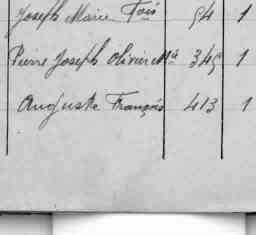 Joseph Marie Fois 94 1
Pierre Joseph Olivier Mie 345 1
Auguste François 413 1